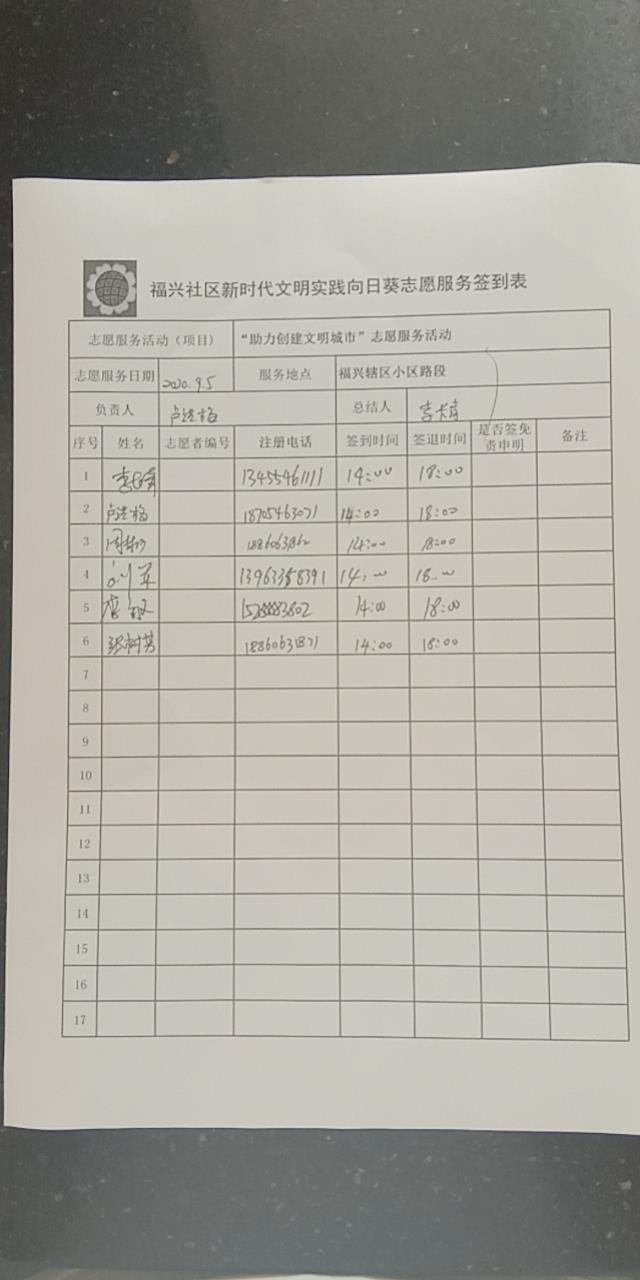 福兴社区新时代文明实践向日葵志愿服务签到表
志愿服务活动（项目） “助力创建文明城市”志愿服务活动
志愿服务日期 2020.9.5 服务地点 福兴辖区小区路段
负责人 总结人
序号 姓名 志愿者编号 注册电话 签到时间 签退时间 是否签免责申明 备注
1 13455461111 14:00 18:00
2 18705463071 14:00 18:00
3 14:00 18:00
4 刘军 13963358391 14:00 18:00
5 14:00 18:00
6 张树芳 18860631871 14:00 18:00
7
8
9
10
11
12
13
14
15
16
17